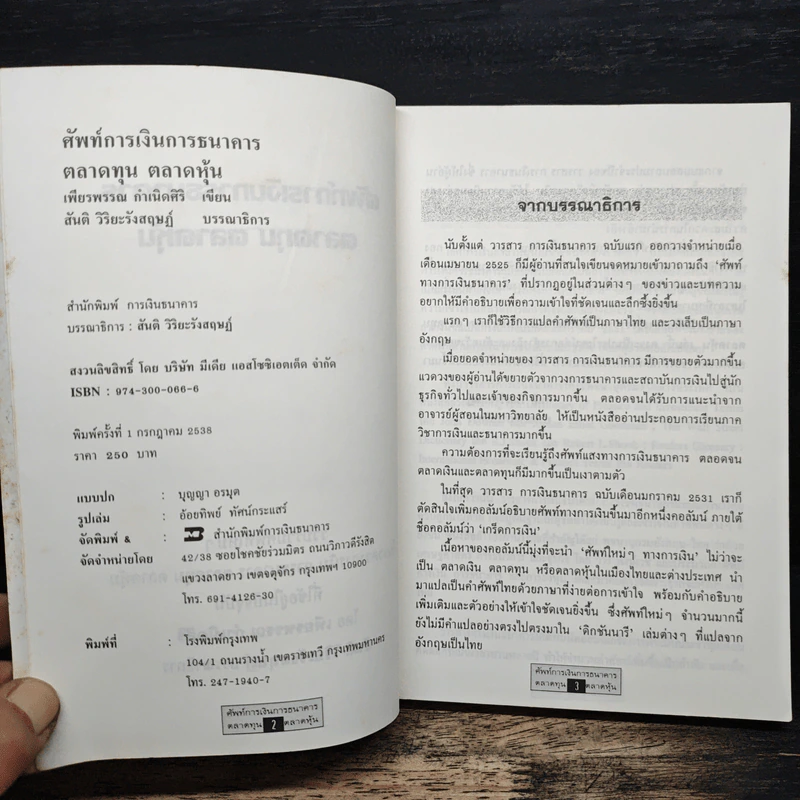 ศัพท์การเงินการธนาคาร
ตลาดทุน ตลาดหุ้น
เพียรพรรณ กำเนิดศิริ เขียน
สันติ วิริยะรังสฤษฎ์ บรรณาธิการ
สำนักพิมพ์ การเงินธนาคาร
บรรณาธิการ : สันติ วิริยะรังสฤษฎ์
สงวนลิขสิทธิ์ โดย บริษัท มีเดีย แอสโซซิเอตเต็ด จำกัด
ISBN : 974-300-066-6
พิมพ์ครั้งที่ 1 กรกฎาคม 2538
ราคา 250 บาท
แบบปก : บุญญา อรมุต
รูปเล่ม : อ้อยทิพย์ ทัศน์กระแสร์
จัดพิมพ์ & : สำนักพิมพ์การเงินธนาคาร
จัดจำหน่ายโดย 42/38 ซอยโชคชัยร่วมมิตร ถนนวิภาวดีรังสิต
แขวงลาดยาว เขตจตุจักร กรุงเทพฯ 10900
โทร. 691-4126-30
พิมพ์ที่ : โรงพิมพ์กรุงเทพ
104/1 ถนนรางน้ำ เขตราชเทวี กรุงเทพมหานคร
โทร. 247-1940-7
ศัพท์การเงินการธนาคาร
ตลาดทุน 2 ตลาดหุ้น
จากบรรณาธิการ
นับตั้งแต่ วารสาร การเงินธนาคาร ฉบับแรก ออกวางจำหน่ายเมื่อ
เดือนเมษายน 2525 ก็มีผู้อ่านที่สนใจเขียนจดหมายเข้ามาถามถึง 'ศัพท์
ทางการเงินธนาคาร' ที่ปรากฏอยู่ในส่วนต่างๆ ของข่าวและบทความ
อยากให้มีคำอธิบายเพื่อความเข้าใจที่ชัดเจนและลึกซึ้งยิ่งขึ้น
แรกๆ เราก็ใช้วิธีการแปลคำศัพท์เป็นภาษาไทย และวงเล็บเป็นภาษา
อังกฤษ
เมื่อยอดจำหน่ายของ วารสาร การเงินธนาคาร มีการขยายตัวมากขึ้น
แวดวงของผู้อ่านได้ขยายตัวจากวงการธนาคารและสถาบันการเงินไปสู่นัก
ธุรกิจทั่วไปและเจ้าของกิจการมากขึ้น ตลอดจนได้รับการแนะนำจาก
อาจารย์ผู้สอนในมหาวิทยาลัย ให้เป็นหนังสืออ่านประกอบการเรียนภาค
วิชาการเงินและธนาคารมากขึ้น
ความต้องการที่จะเรียนรู้ถึงศัพท์แสงทางการเงินธนาคาร ตลอดจน
ตลาดเงินและตลาดทุนก็มีมากขึ้นเป็นเงาตามตัว
ในที่สุด วารสาร การเงินธนาคาร ฉบับเดือนมกราคม 2531 เราก็
ตัดสินใจเพิ่มคอลัมน์อธิบายศัพท์ทางการเงินขึ้นมาอีกหนึ่งคอลัมน์ ภายใต้
ชื่อคอลัมน์ว่า 'เกร็ดการเงิน'
เนื้อหาของคอลัมน์นี้มุ่งที่จะนำ 'ศัพท์ใหม่ๆ ทางการเงิน' ไม่ว่าจะ
เป็น ตลาดเงิน ตลาดทุน หรือตลาดหุ้นในเมืองไทยและต่างประเทศ นำ
มาแปลเป็นคำศัพท์ไทยด้วยภาษาที่ง่ายต่อการเข้าใจ พร้อมกับคำอธิบาย
เพิ่มเติมและตัวอย่างให้เข้าใจชัดเจนยิ่งขึ้น ซึ่งศัพท์ใหม่ๆ จำนวนมากนี้
ยังไม่มีคำแปลอย่างตรงไปตรงมาใน 'ดิกชันนารี' เล่มต่างๆ ที่แปลจาก
อังกฤษเป็นไทย
ศัพท์การเงินการธนาคาร
ตลาดทุน 3 ตลาดหุ้น